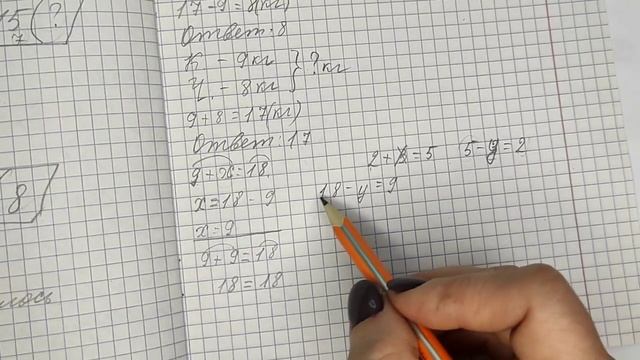 15 ( ?
7
17 - 9 = 8(кг)
Ответ: 8
К - 9 кг
Ч. - 8 кг } ? кг
9 + 8 = 17(кг)
Ответ: 17
9 + x = 18
x = 18 - 9
x = 9
9 + 9 = 18
18 = 18
2 + = 5 5 - = 2
18 - y = 9
8
лось